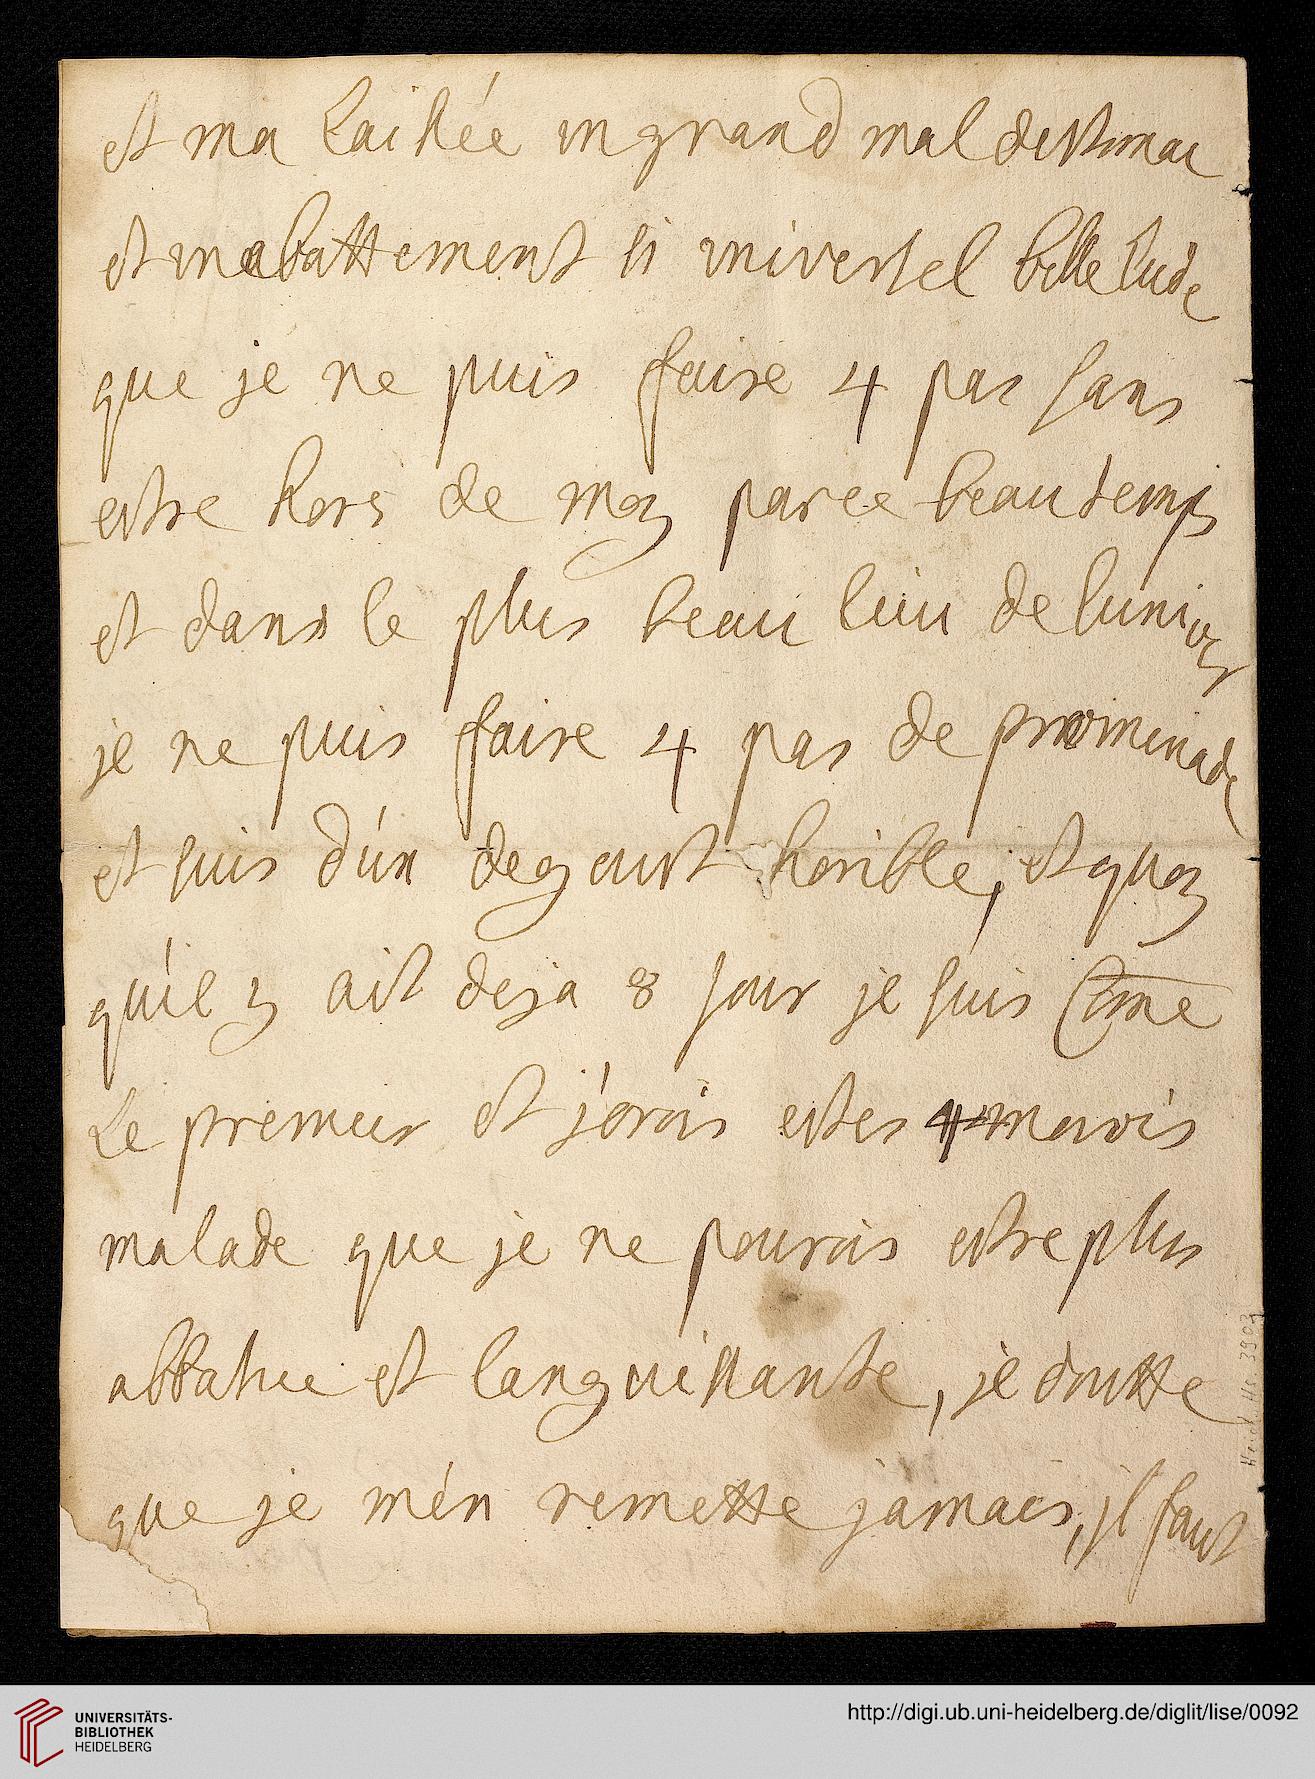 et ma Laissée un grand mal destomac
et un abattement si universel
que je ne puis faire 4 pas sans
estre hors de moy par ce beau temps
et dans le plus beau lieu de lunivers
je ne puis faire 4 pas de promenade
et suis d'un degoust horible, et quoy
qu'il y ait deja 8 jour je suis Come
Le premier et j'orois estes mois
malade que je ne pourois estre plus
abbatue et languissante, je doutte
que je m'en remette jamais, jl faut
Heid. Hs. 3903
UNIVERSITÄTS-
BIBLIOTHEK
HEIDELBERG
http://digi.ub.uni-heidelberg.de/diglit/lise/0092